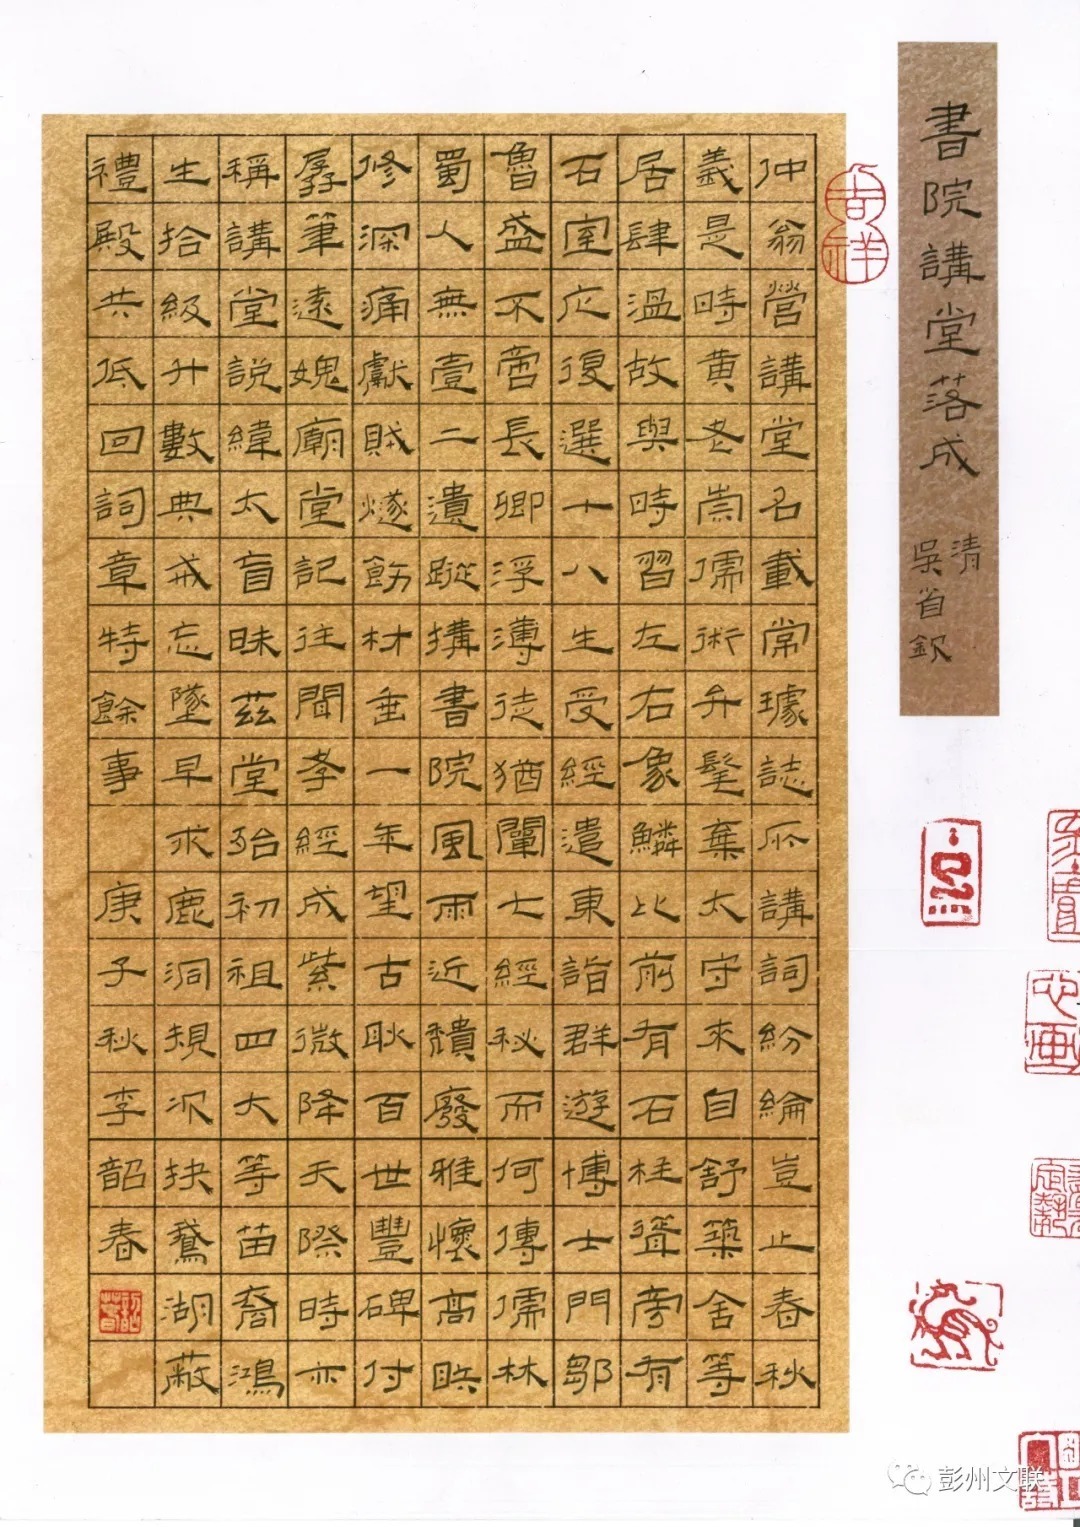 書院講堂落成
清
吳省欽
吉祥
仲翁營講堂名載常璩誌所講詞紛綸豈止春秋
義是時黃老崇儒術弁髦棄太守來自舒築舍等
居肆溫故與時習左右象鱗比前有石柱聳旁有
石室庀復選十八生受經遣東詣群遊博士門鄒
魯盛不啻長卿浮薄徒猶闡七經秘而何傳儒林
蜀人無壹二遺蹤搆書院風雨近穨廢雅懷高
修深痛獻賊燧飭材垂一年望古耿百世豐碑付
孱筆遠媿廟堂記往聞孝經成紫微降天際時亦
稱講堂說緯太盲昧茲堂殆初祖四大等苗裔鴻
生拾級升數典戒忘墜早求鹿洞規次抉鵞湖蔽
禮殿共低回詞章特餘事
庚子秋李韶春
彭州文联